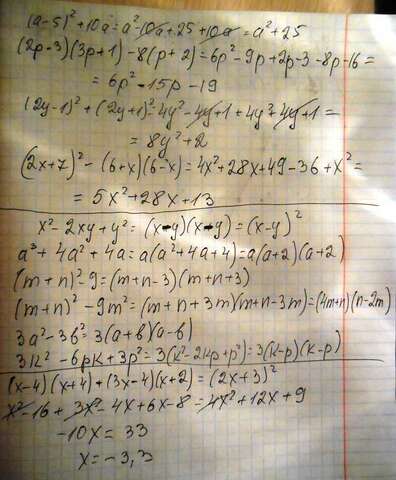 (a-5)²+10a=a²-10a+25+10a=a²+25
(2p-3)(3p+1)-8(p+2)=6p²-9p+2p-3-8p-16=
=6p²-15p-19
(2y-1)²+(2y+1)²=4y²-4y+1+4y²+4y+1=
=8y²+2
(2x+7)²-(6+x)(6-x)=4x²+28x+49-36+x²=
=5x²+28x+13
x²-2xy+y²=(x-y)(x-y)=(x-y)²
a³+4a²+4a=a(a²+4a+4)=a(a+2)(a+2)
(m+n)²-9=(m+n-3)(m+n+3)
(m+n)²-9m²=(m+n+3m)(m+n-3m)=(4m+n)(n-2m)
3a²-3b²=3(a+b)(a-b)
3k²-6pk+3p²=3(k²-2kp+p²)=3(k-p)(k-p)
(x-4)(x+4)+(3x-4)(x+2)=(2x+3)²
x²-16+3x²-4x+6x-8=4x²+12x+9
-10x=33
x=-3,3